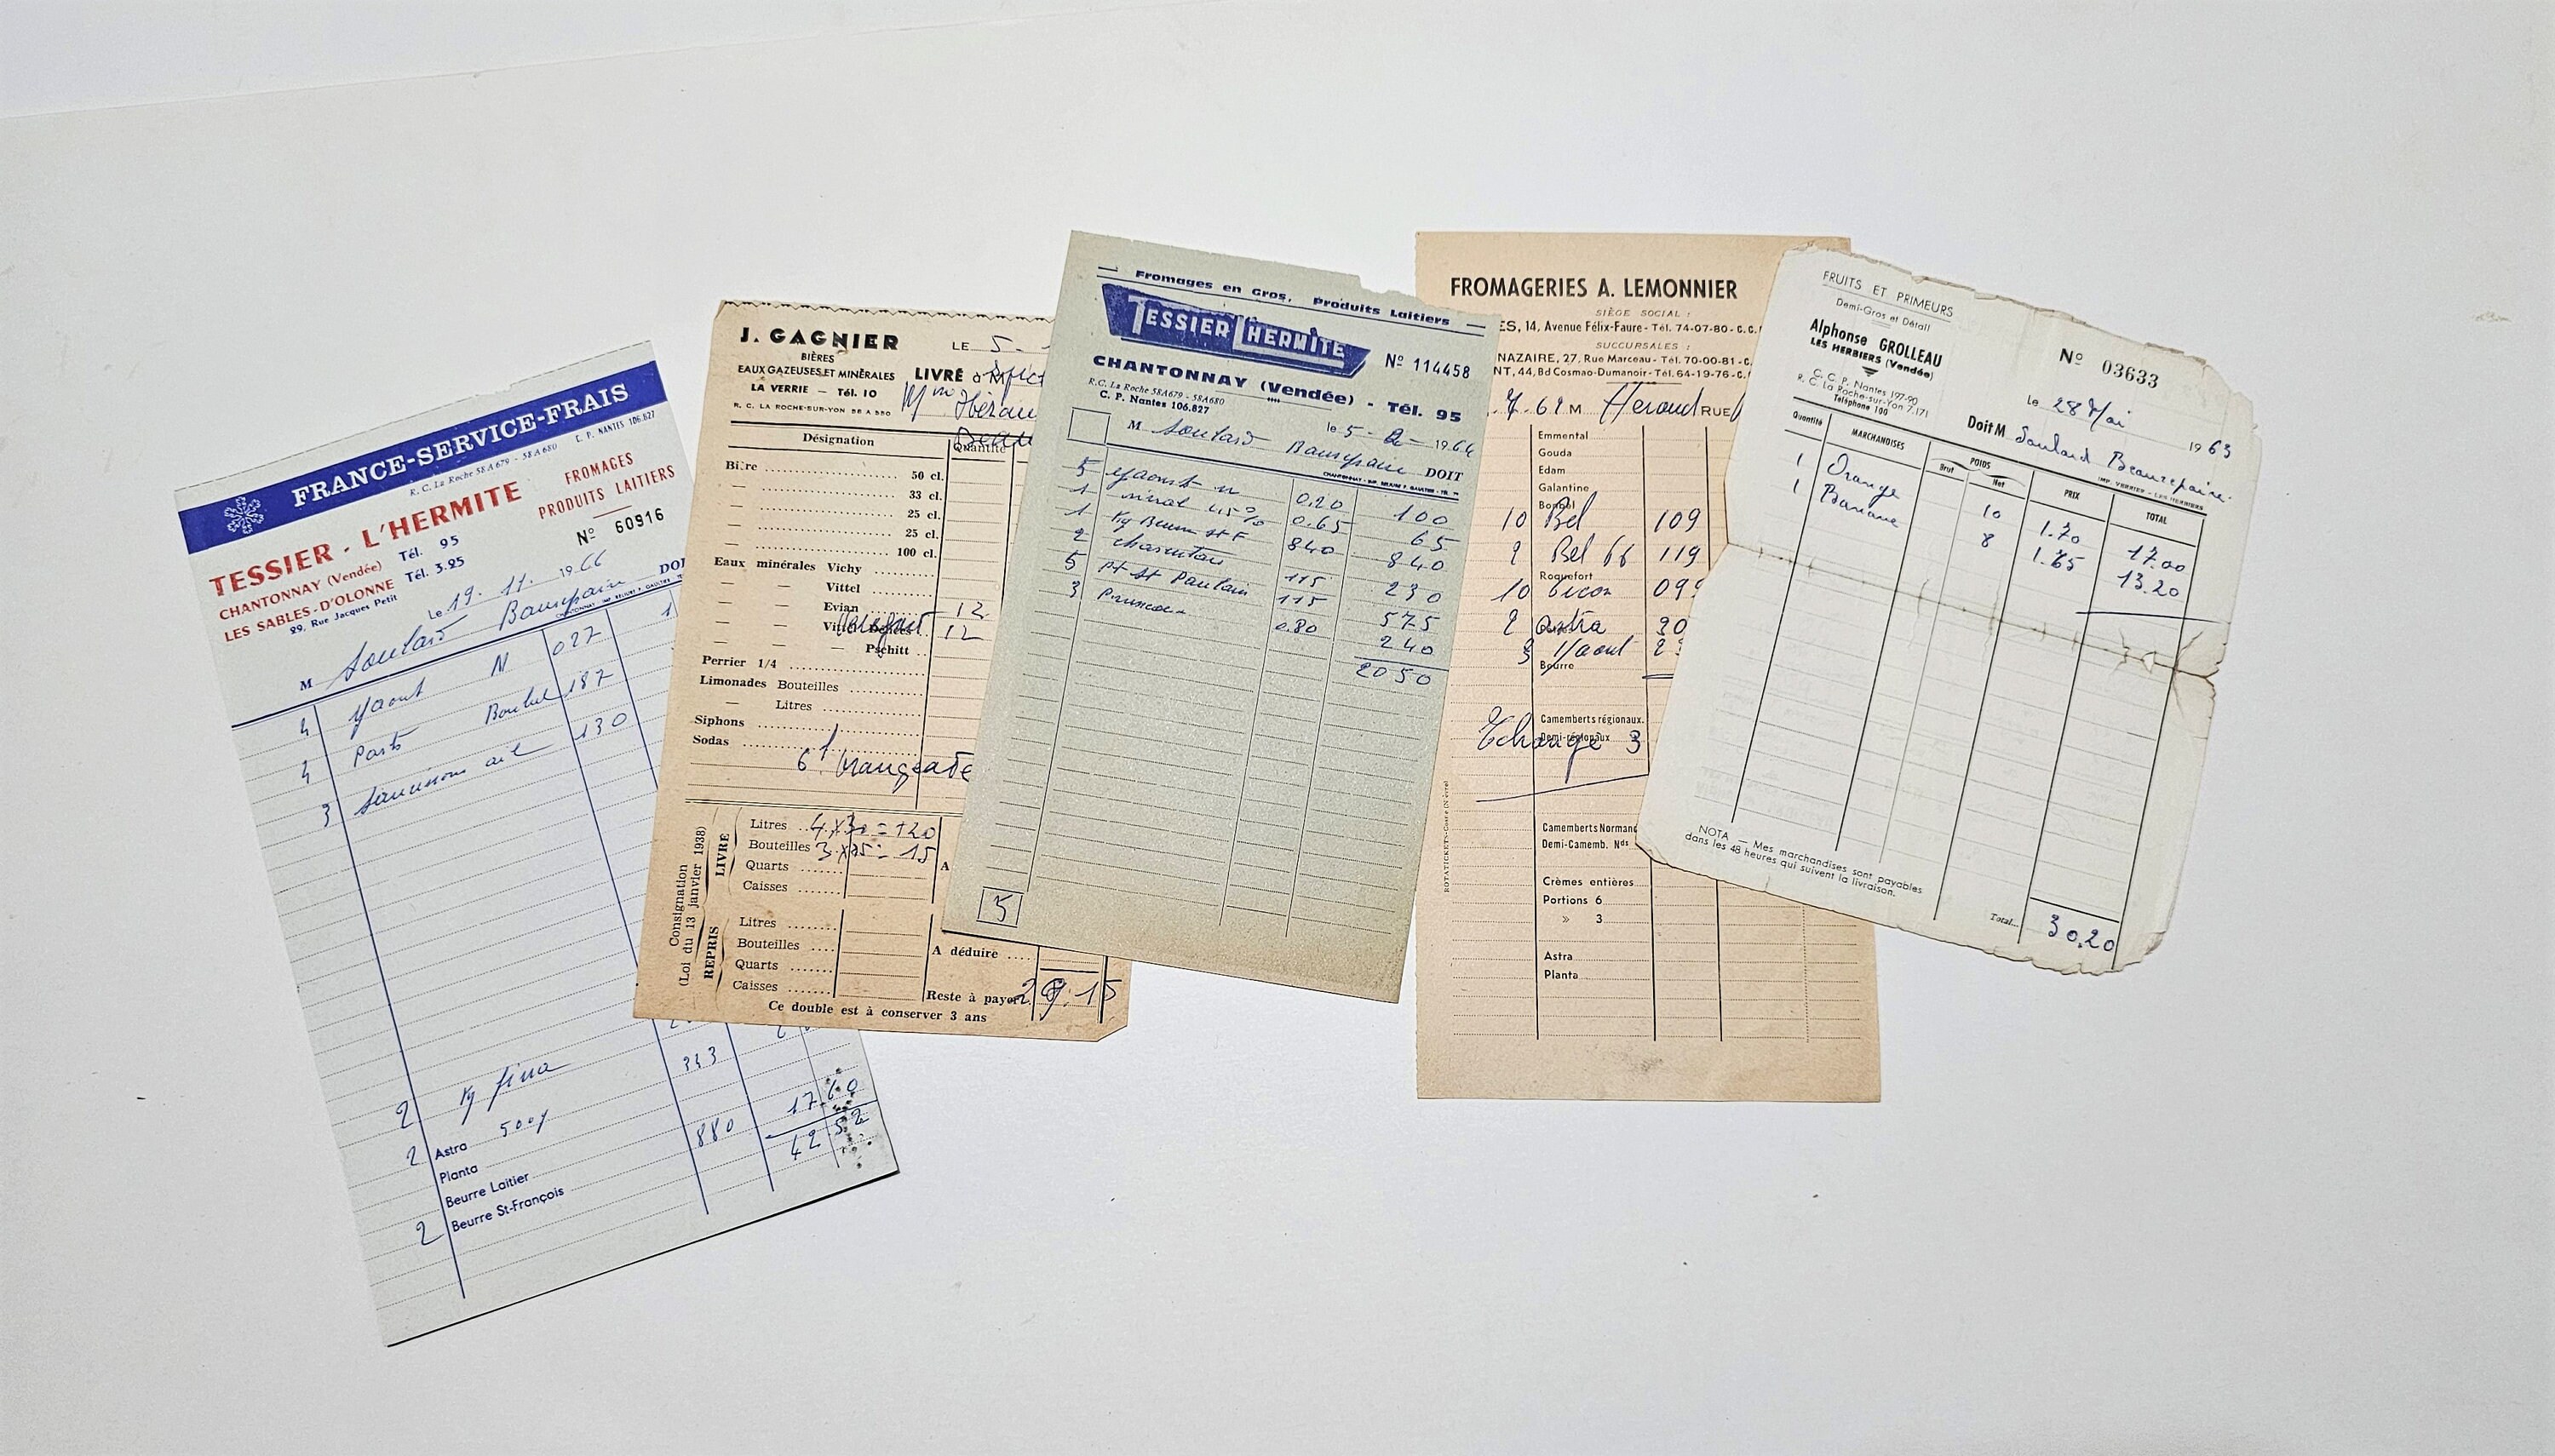 FRANCE-SERVICE-FRAIS
R. C. La Roche 58A679 - 58A680 C. P. NANTES 106.827
TESSIER - L'HERMITE
FROMAGES
PRODUITS LAITIERS
CHANTONNAY (Vendée) Tél. 95
LES SABLES-D'OLONNE Tél. 3.25
29, Rue Jacques Petit
Nº 60916
Le 19. 11. 1966
M Soulard
4 yaourt N 027
4 187
3 130
2 Kg fina
2 Astra 500g
Planta
Beurre Laitier
2 Beurre St-François 880 17.60
42 52
J. GAGNIER
BIÈRES
EAUX GAZEUSES ET MINÉRALES
LA VERRIE — Tél. 10
R. C. LA ROCHE-SUR-YON 58 A 550
LE 5 -
LIVRÉ à M
Désignation Quantité
Bière 50 cl.
— 33 cl.
— 25 cl.
— 25 cl.
— 100 cl.
Eaux minérales Vichy
— — Vittel
— — Evian 12
— — 12
— — Pschitt
Perrier 1/4
Limonades Bouteilles
— Litres
Siphons
Sodas
6 orangeade
Consignation
(Loi du 13 janvier 1938)
LIVRÉ
Litres
Bouteilles
Quarts A
Caisses
REPRIS
Litres
Bouteilles A déduire
Quarts
Caisses Reste à payer
Ce double est à conserver 3 ans
Fromages en Gros, Produits Laitiers
TESSIER LHERMITE
Nº 114458
CHANTONNAY (Vendée) - Tél. 95
R.C. La Roche 58A679 - 58A680
C. P. Nantes 106.827
le 5 - 2 - 1964
M Soulard DOIT
5 yaourt N 0.20 100
1 0.65 65
1 Kg Beurre St F 840 840
2 charentais 115 230
5 Pt St Paulain 115 575
3 0.80 240
2050
5
FROMAGERIES A. LEMONNIER
SIÈGE SOCIAL :
ES, 14, Avenue Félix-Faure - Tél. 74-07-80 - C.C.
SUCCURSALES :
NAZAIRE, 27, Rue Marceau - Tél. 70-00-81 - C.
NT, 44, Bd Cosmao-Dumanoir - Tél. 64-19-76 - C.
M Heraud RUE
Emmental
Gouda
Edam
Galantine
Bonbel
10 Bel 109
2 Bel 66 119
Roquefort
10
2 astra
3 Yaout
Beurre
Camemberts régionaux
Demi-régionaux
Echange 3
Camemberts Normand
Demi-Camemb. Nds
Crèmes entières
Portions 6
» 3
Astra
Planta
ROTATICKET-Cosne (Nièvre)
FRUITS ET PRIMEURS
Demi-Gros et Détail
Alphonse GROLLEAU
LES HERBIERS (Vendée)
C. C. P. Nantes 197-90
R. C. La Roche-sur-Yon 7.171
Téléphone 100
Nº 03633
Le 28 Mai 1963
Doit M Soulard Beaurepaire.
IMP. VERRIER - LES HERBIERS
Quantité MARCHANDISES POIDS PRIX TOTAL
Brut Net
1 Orange 10 1.70 17.00
1 Banane 8 1.65 13.20
NOTA — Mes marchandises sont payables
dans les 48 heures qui suivent la livraison.
Total... 30.20